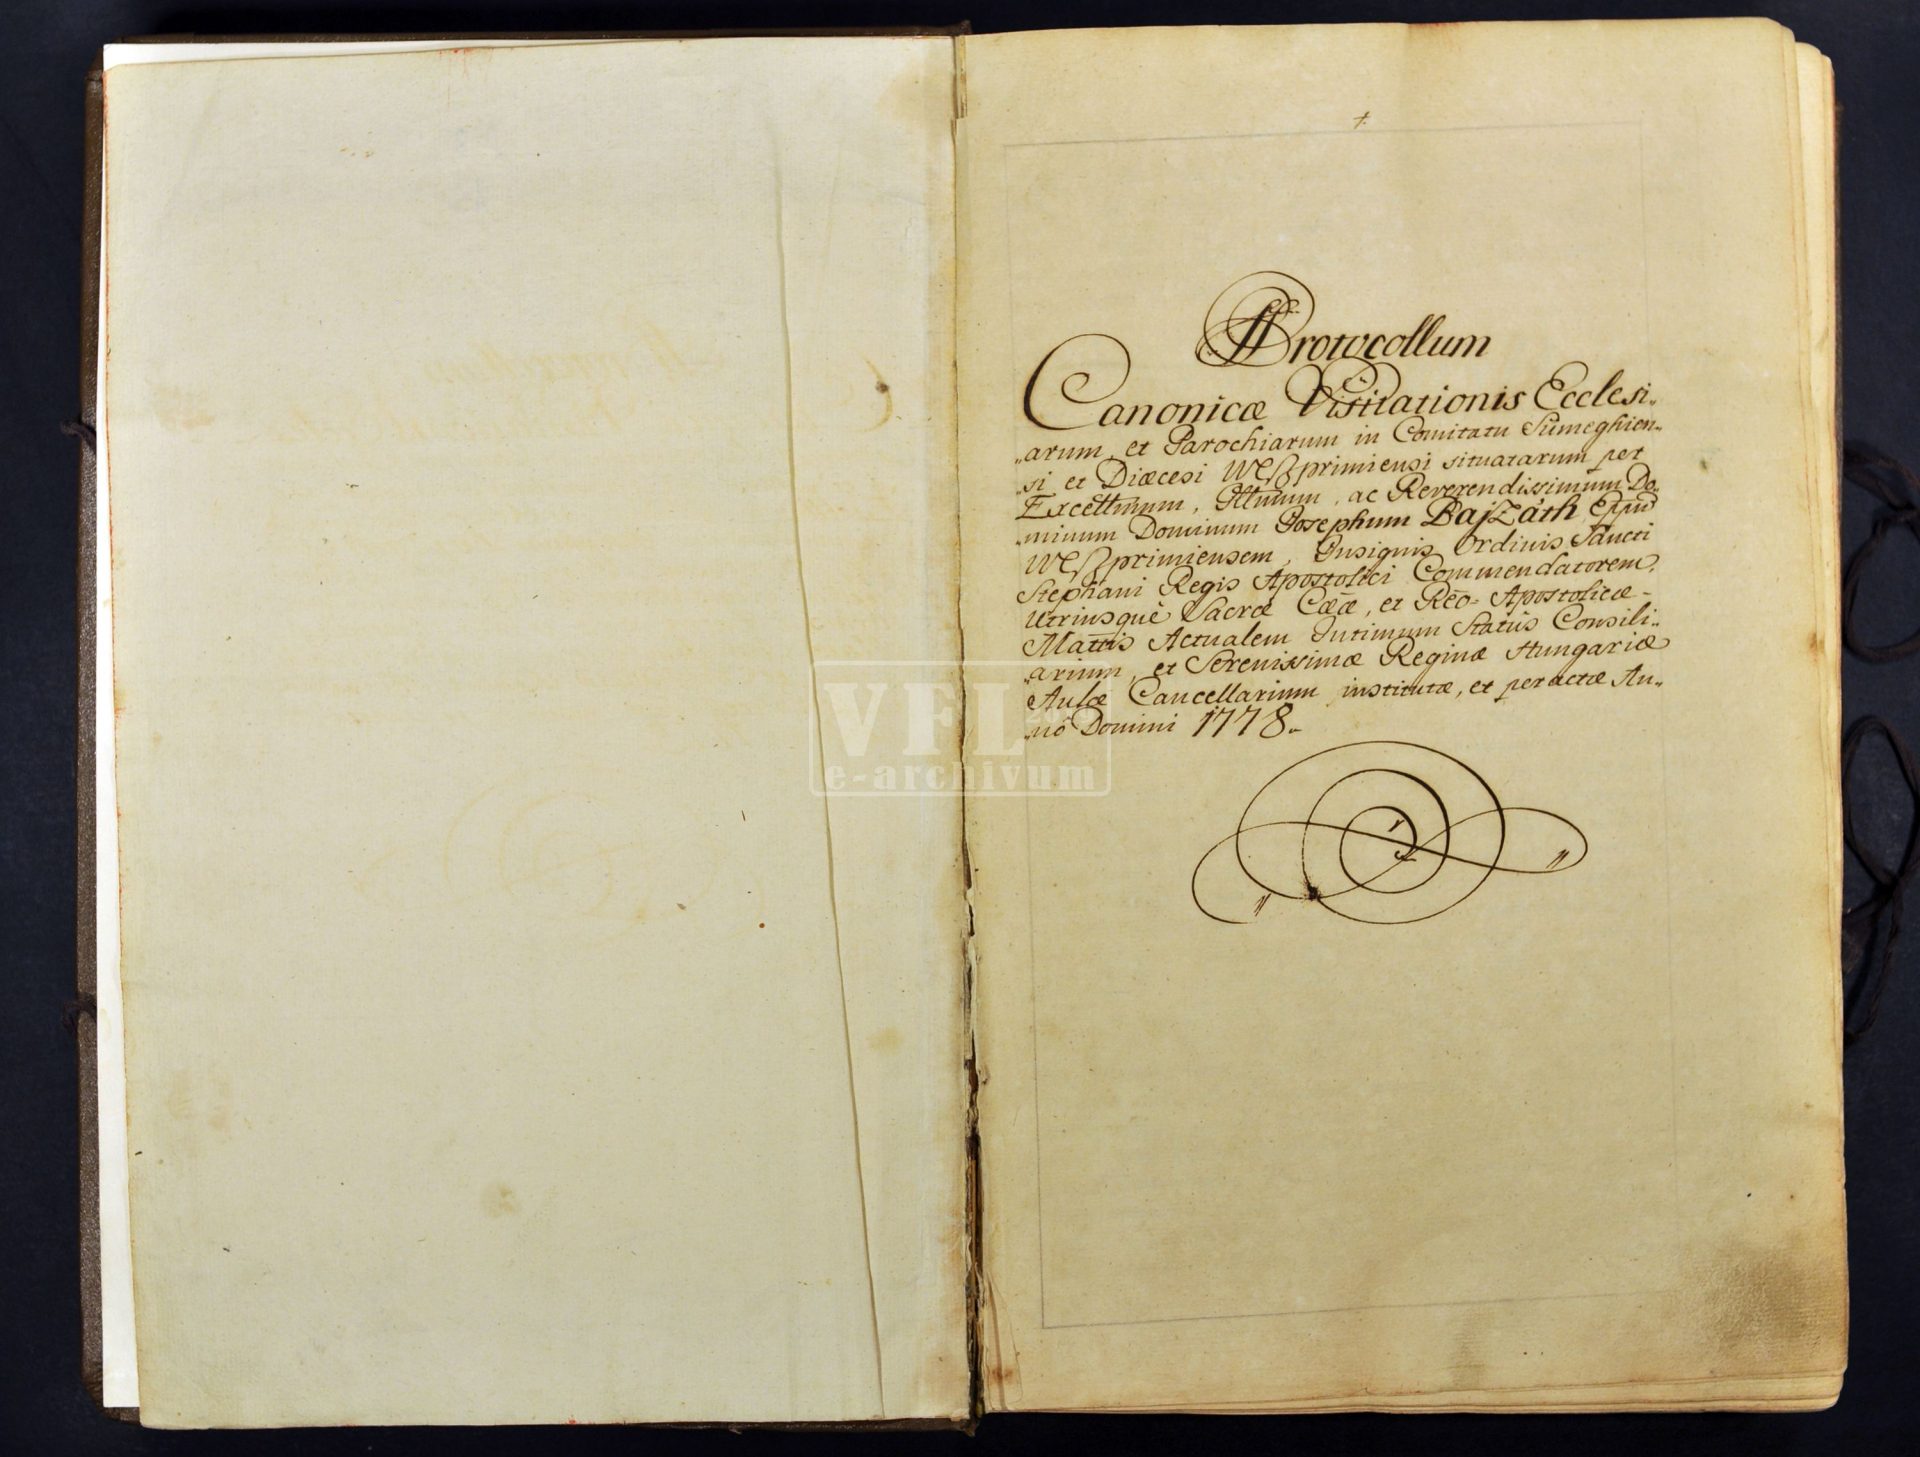 1.
Protocollum
Canonicæ Visitationis Ecclesi„
„arum, et Parochiarum in Comitatu Sümeghien„
„si et Diæcesi Weszprimiensi situatarum per
Excellmum, Illmum, ac Reverendissimum Do„
„minum Dominum Josephum Bajzáth Eppum
Weszprimiensem, Insignis Ordinis Sancti
Stephani Regis Apostolici Commendatorem,
Utriusquè Sacræ Cǣæ, et Rēo-Apostolicæ-
Mattis Actualem Intimum Status Consili„
„arium, et Serenissimæ Reginæ Hungariæ
Aulæ Cancellarium institutæ, et peractæ An„
„nô Domini 1778.
VFL
e-archivum